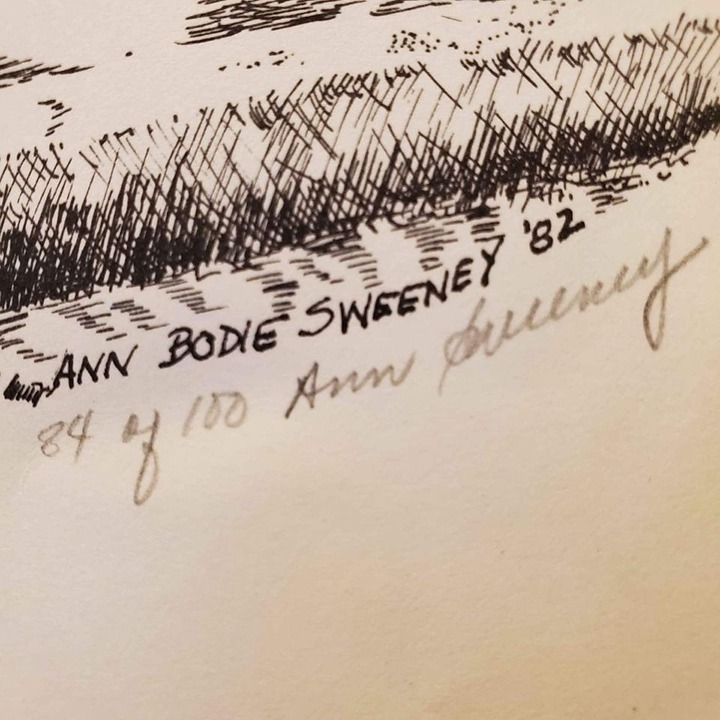 ANN BODIE SWEENEY '82
84 of 100 Ann Sweeney